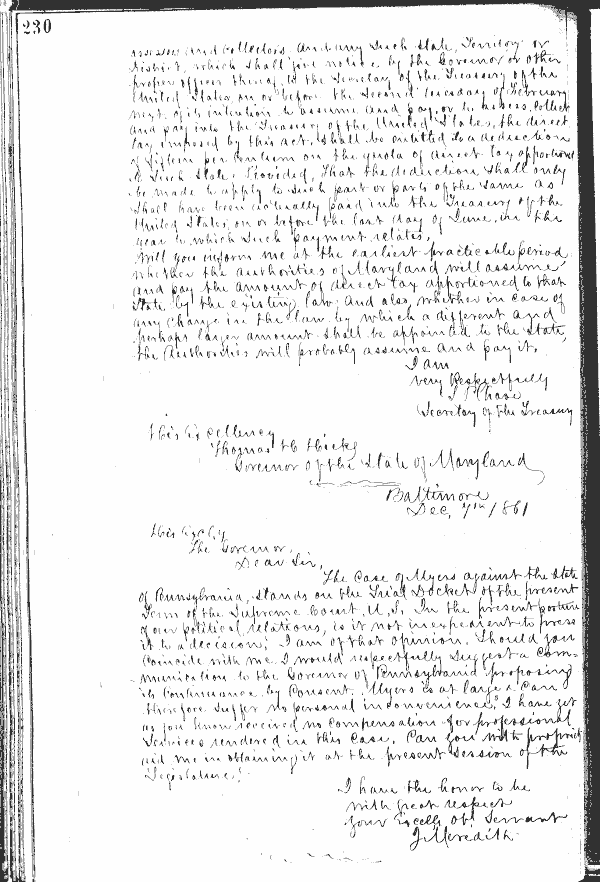 230
assessors and collectors. And any such State, Territory or
District, which shall give notice by the Governor or other
proper officer thereof, to the Secretary of the Treasury of the
United States, on or before the Second Tuesday of February
next, of its intention to assume and pay, or to assess, collect
and pay into the Treasury of the United States, the direct
tax, imposed by this Act, shall be entitled to a deduction
of fifteen per centum on the quota of direct tax apportioned
to such State. Provided, That the deduction shall only
be made to apply to such part or parts of the same as
shall have been actually paid into the Treasury of the
United States, on or before the last day of June, in the
year to which such payment relates.
Will you inform me at the earliest practicable period
whether the authorities of Maryland will assume
and pay the amount of direct tax apportioned to that
State by the existing law, And also, whether in case of
any change in the law by which a different and
perhaps larger amount shall be appointed to the State,
the Authorities will probably assume and pay it.
I am
very Respectfully
S P Chase
Secretary of the Treasury
His Excellency
Thomas H Hicks
Governor of the State of Maryland
Baltimore
Dec, 7th 1861
His Excly
The Governor,
Dear Sir,
The case of Myers against the State
of Pennsylvania, stands on the Trial Docket of the present
Term of the Supreme Court, U, S, In the present posture
of our political relations, is it not inexpedient to press
it to a decision; I am of that opinion. Should you
coincide with me I would respectfully suggest a com-
munication to the Governor of Pennsylvania proposing
its continuance by consent. Myers is at large & can
therefore suffer no personal inconvenience, I have yet
as you know received no compensation for professional
services rendered in this case. Can you with propriety
aid me in obtaining it at the present session of the
Legislature?
I have the honor to be
with great respect
your Excelly ob. Servant
J. Meredith